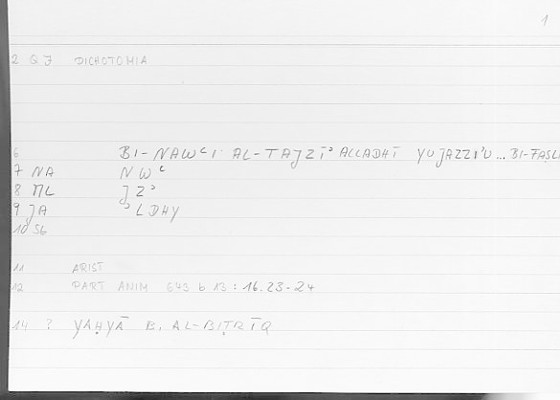 1
2 QJ DICHOTOMIA
6 BI-NAWʿI AL-TAJZĪʾ ALLADHĪ YUJAZZIʾU ... BI-FAṢLI
7 NA NWʿ
8 ML JZʾ
9 JA ʾLDHY
10 56
11 ARIST
12 PART ANIM 643 b 13 : 16.23-24
14 ? YAḤYĀ B. AL-BIṬRĪQ